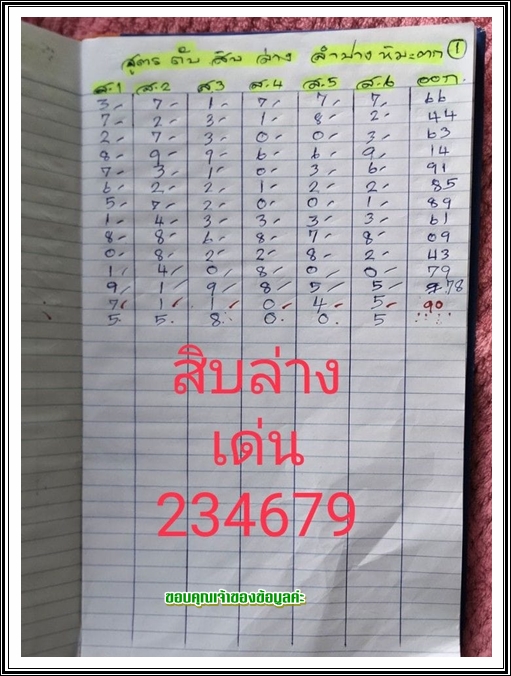 สูตร ดับ สิบ ล่าง ลำปาง หิมะตก ①
ส.1 ส.2 ส.3 ส.4 ส.5 ส.6 ออก.
3 7 1 7 7 7 66
7 2 3 1 8 2 44
2 7 3 0 0 3 63
8 9 9 6 6 9 14
7 3 1 0 3 6 91
6 2 2 1 2 2 85
5 7 2 0 0 1 89
1 4 3 3 3 3 61
8 8 6 8 7 8 09
0 8 2 2 8 2 43
1 4 0 8 0 0 79
9 1 9 8 5 5 78
7 1 1 0 4 5 90
5 5 8 0 0 5
สิบล่าง
เด่น
234679
ขอบคุณเจ้าของข้อมูลค่ะ